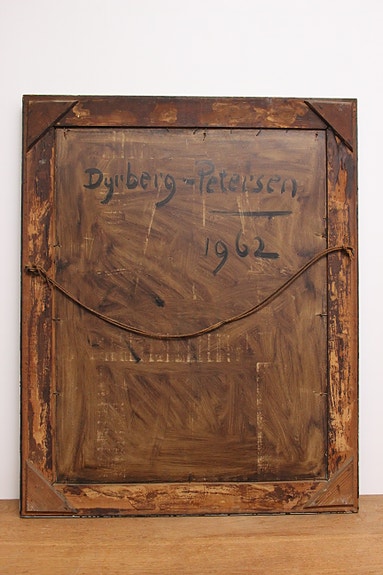 Dyrberg-Petersen
1962